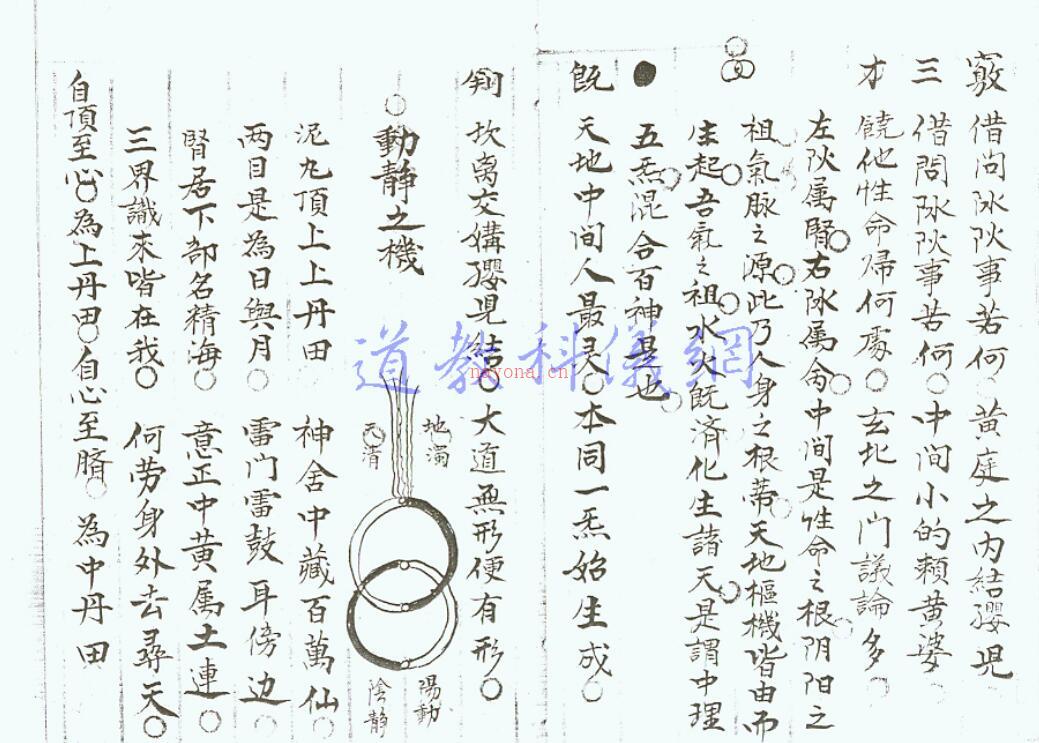 竅 借问阥阦事若何 黄庭之内結嬰児
三 借問阥阦事若何○中间小的賴黄婆
才 饒他性命帰何處○玄牝之门議論多
左阦属腎右阥属禽中间是性命之根阴阳之
祖氣脉之源此乃人身之根蒂天地樞機皆由而
生起吾氣之祖水火既済化生諸天是謂中理
五炁混合百神是也
既 天地中间人最灵○本同一炁始生成○
坎离交媾嬰児結○大道無形便有形○
動静之機
地濁
天清
陽動
陰静
泥丸頂上上丹田 神舍中藏百萬仙
两目是為日與月○雷门雷鼓耳傍边
腎居下部名精海○意正中黄属土連○
三界識來皆在我○何劳身外去尋天○
自頂至心○為上丹田○自心至臍○為中丹田
道教科儀網
nayona.cn